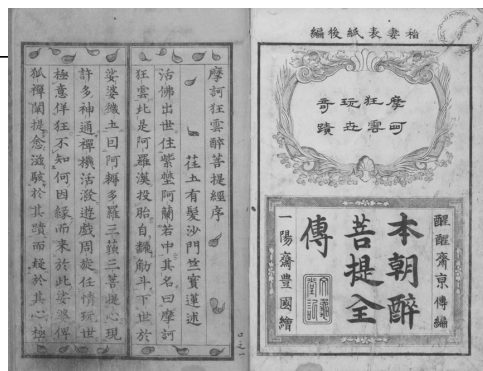 稲妻表紙後編
摩訶
狂雲
玩世
奇蹟
醒醒齋京傳編
本朝醉
菩提全
傳
一陽齋豐國繪
摩訶狂雲醉菩提經序
在土有髮沙門
寶蓮述
活佛出世住紫埜阿蘭若中其名曰摩訶
狂雲此是阿羅漢投胎自飜觔斗下世於
娑婆穢土因阿耨多羅三藐三菩提心現
許多神通禪機活潑遊戲周旋任情玩世
極意佯狂不知何因緣而来於此娑婆俾
狐禪闡提愈滋駭於其蹟而疑於其心極